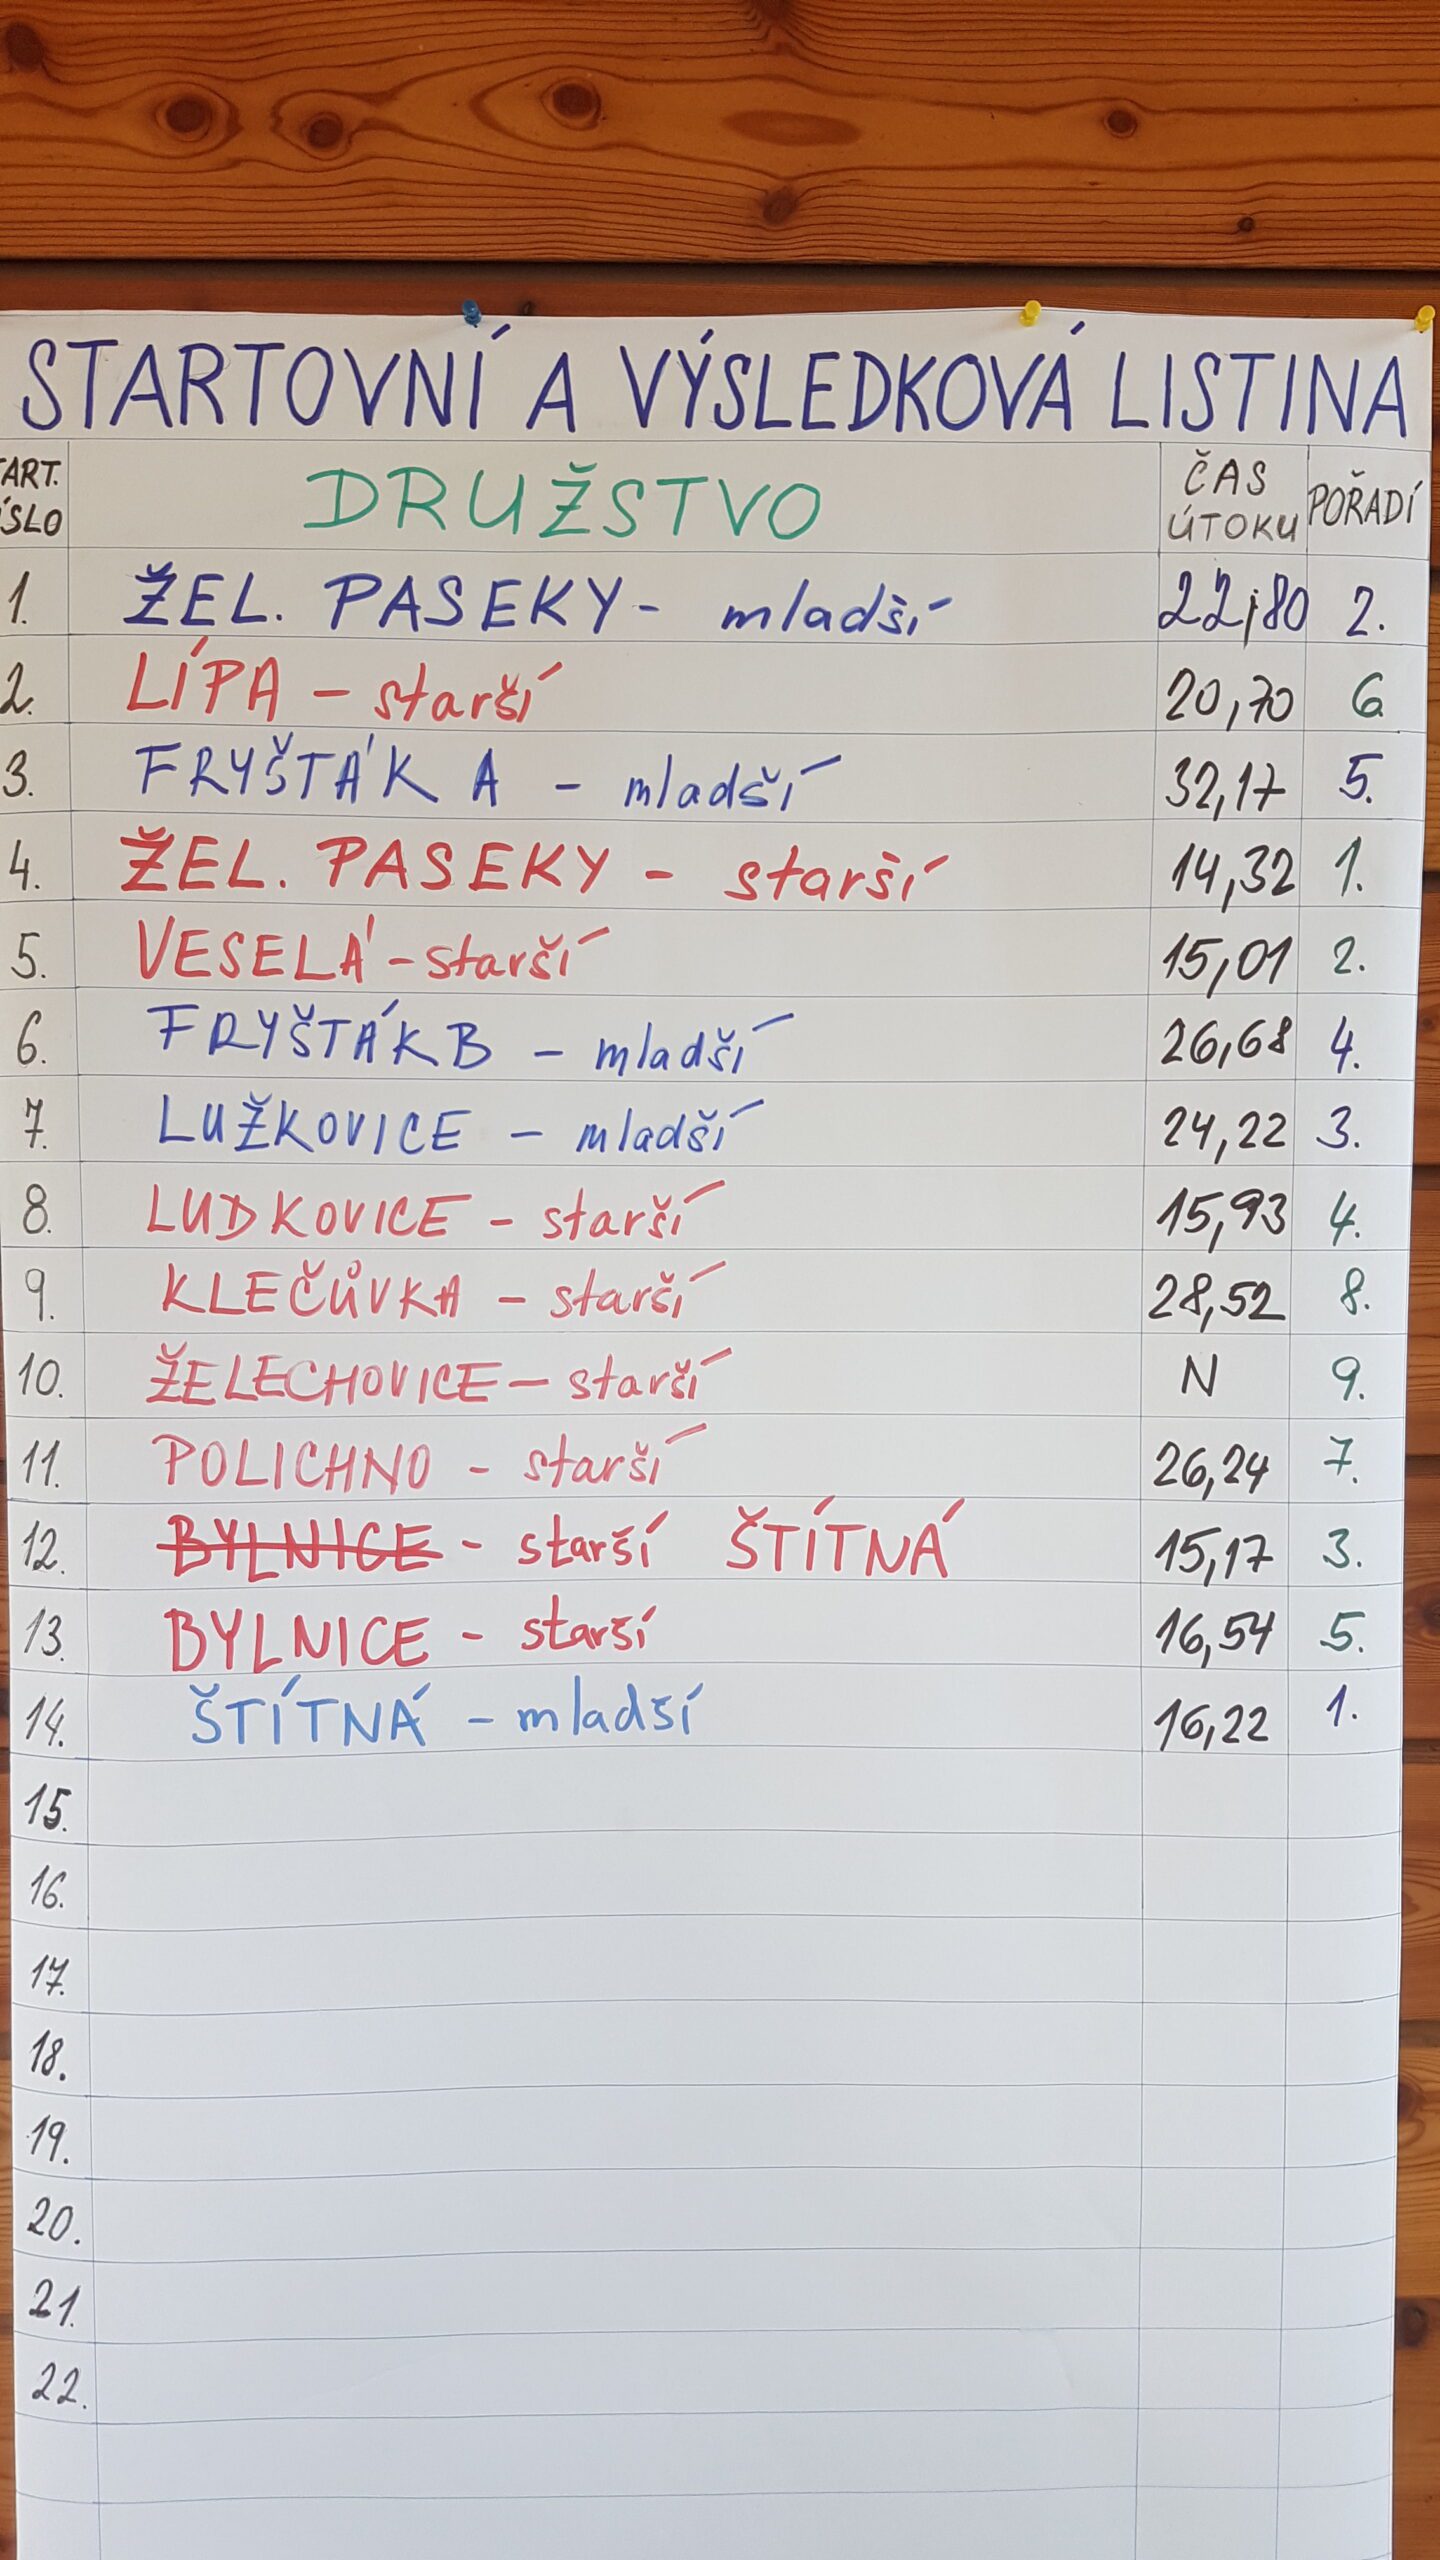 STARTOVNÍ A VÝSLEDKOVÁ LISTINA
DRUŽSTVO ČAS ÚTOKU POŘADÍ
1. ŽEL. PASEKY - mladší 22,80 2.
2. LÍPA - starší 20,70 6.
3. FRYŠTÁK A - mladší 32,17 5.
4. ŽEL. PASEKY - starší 14,32 1.
5. VESELÁ - starší 15,01 2.
6. FRYŠTÁK B - mladší 26,68 4.
7. LUŽKOVICE - mladší 24,22 3.
8. LUDKOVICE - starší 15,93 4.
9. KLEČŮVKA - starší 28,52 8.
10. ŽELECHOVICE - starší N 9.
11. POLICHNO - starší 26,24 7.
12. BYLNICE - starší ŠTÍTNÁ 15,17 3.
13. BYLNICE - starší 16,54 5.
14. ŠTÍTNÁ - mladší 16,22 1.
15.
16.
17.
18.
19.
20.
21.
22.